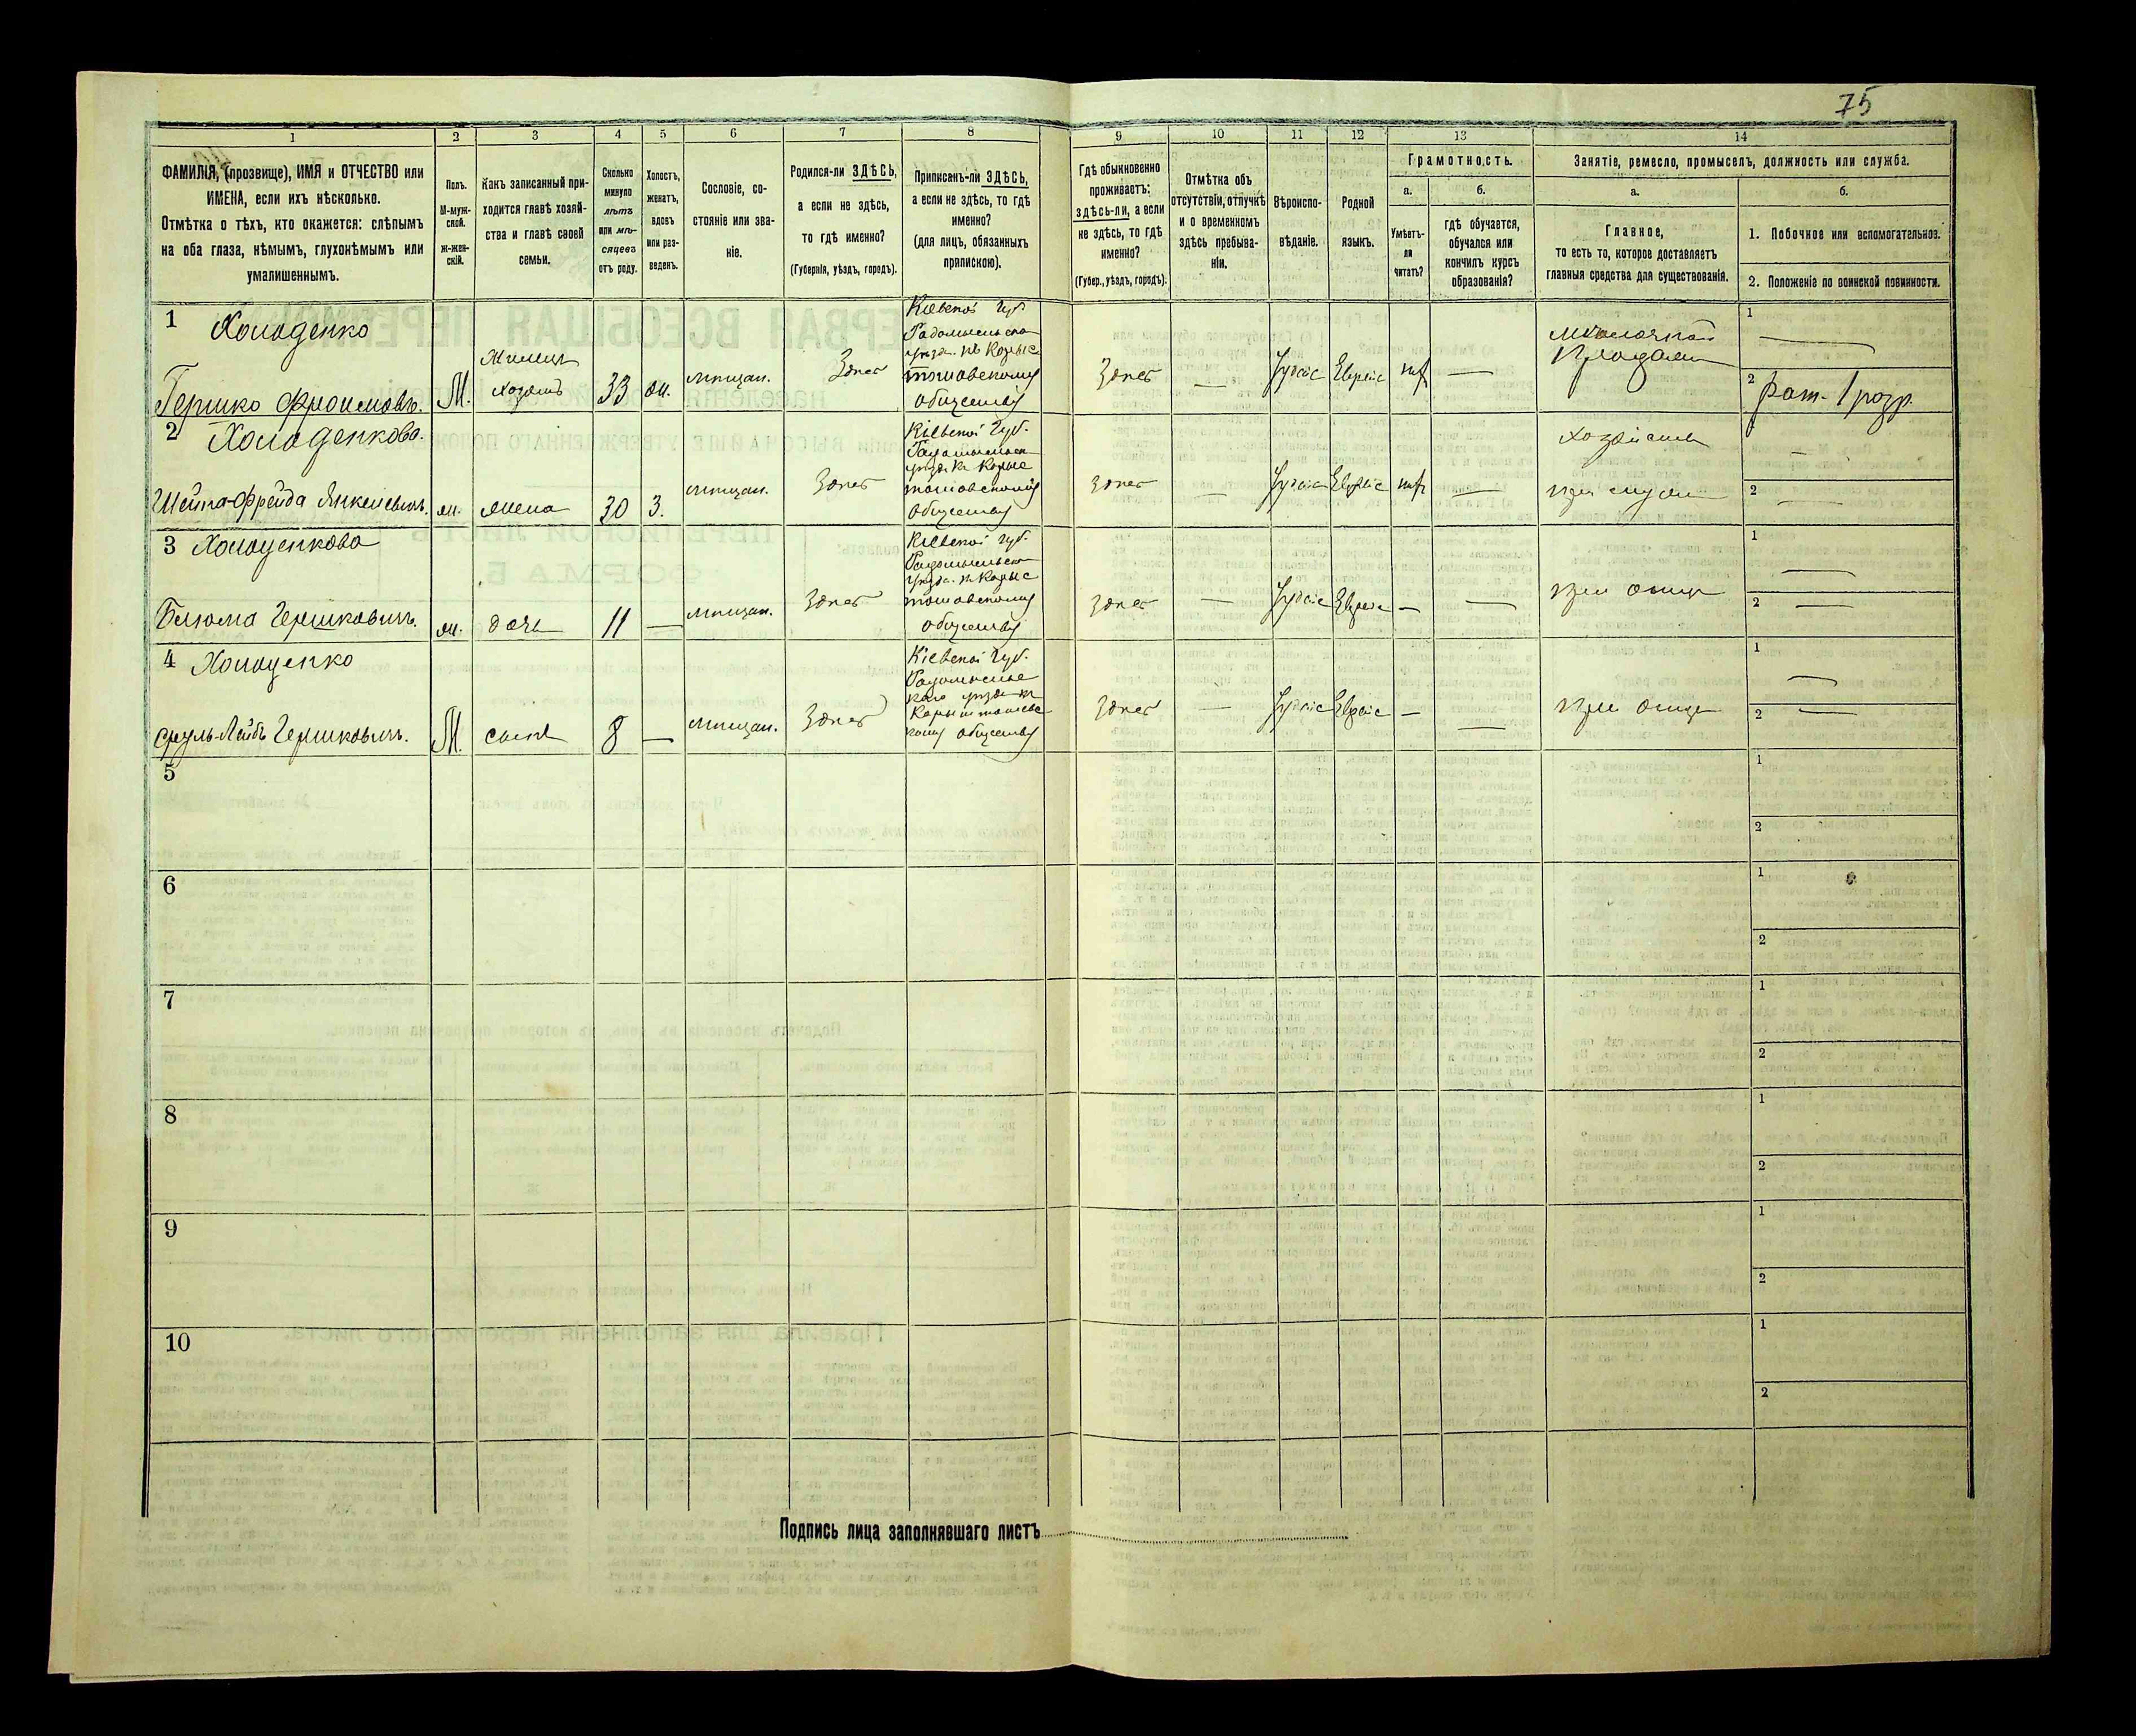 75
1 2 3 4 5 6 7 8 9 10 11 12 13 14
ФАМИЛІЯ, (прозвище), ИМЯ и ОТЧЕСТВО или
ИМЕНА, если ихъ нѣсколько.
Отмѣтка о тѣхъ, кто окажется: слѣпымъ
на оба глаза, нѣмымъ, глухонѣмымъ или
умалишеннымъ.
Полъ.
М-муж-
ской.
ж-жен-
скій.
Какъ записанный при-
ходится главѣ хозяй-
ства и главѣ своей
семьи.
Сколько
минуло
лѣтъ
или мѣ-
сяцевъ
отъ роду.
Холостъ,
женатъ,
вдовъ
или раз-
веденъ.
Сословіе, со-
стояніе или зва-
ніе.
Родился-ли ЗДѢСЬ,
а если не здѣсь,
то гдѣ именно?
(Губернія, уѣздъ, городъ).
Приписанъ-ли ЗДѢСЬ,
а если не здѣсь, то гдѣ
именно?
(для лицъ, обязанныхъ
припискою).
Гдѣ обыкновенно
проживаетъ:
здѣсь-ли, а если
не здѣсь, то гдѣ
именно?
(Губер., уѣздъ, городъ).
Отмѣтка объ
отсутствіи, отлучкѣ
и о временномъ
здѣсь пребыва-
ніи.
Вѣроиспо-
вѣданіе.
Родной
языкъ.
Грамотность.
а.
Умѣетъ-
ли
читать?
б.
гдѣ обучается,
обучался или
кончилъ курсъ
образованія?
Занятіе, ремесло, промыселъ, должность или служба.
а.
Главное,
то есть то, которое доставляетъ
главныя средства для существованія.
б.
1. Побочное или вспомогательное.
2. Положеніе по воинской повинности.
1 Холоденко
Гершко Фроимовъ.
М.
хозяинъ
33
мѣщан.
Здѣсь
Кіевской губ.
обществу
Здѣсь
—
Іудейс
Еврейс
—
1 —
2 Рат. 1 разр.
2 Холоденкова.
Шейна-Фрейда Янкелевна.
ж.
жена
30
З.
мѣщан.
Здѣсь
Кіевской губ.
обществу
Здѣсь
—
Іудейс
Еврейс
—
1 —
2 —
3 Холоденкова
Гершковна.
ж.
дочь
11
—
мѣщан.
Здѣсь
Кіевской губ.
обществу
Здѣсь
—
Іудейс
Еврейс
—
—
при отцѣ
1 —
2 —
4 Холоденко
Сруль-Лейбъ Гершковичъ.
М.
сынъ
8
—
мѣщан.
Здѣсь
Кіевской губ.
обществу
Здѣсь
—
Іудейс
Еврейс
—
—
при отцѣ
1 —
2 —
5 1
2
6 1
2
7 1
2
8 1
2
9 1
2
10 1
2
Подпись лица заполнявшаго листъ